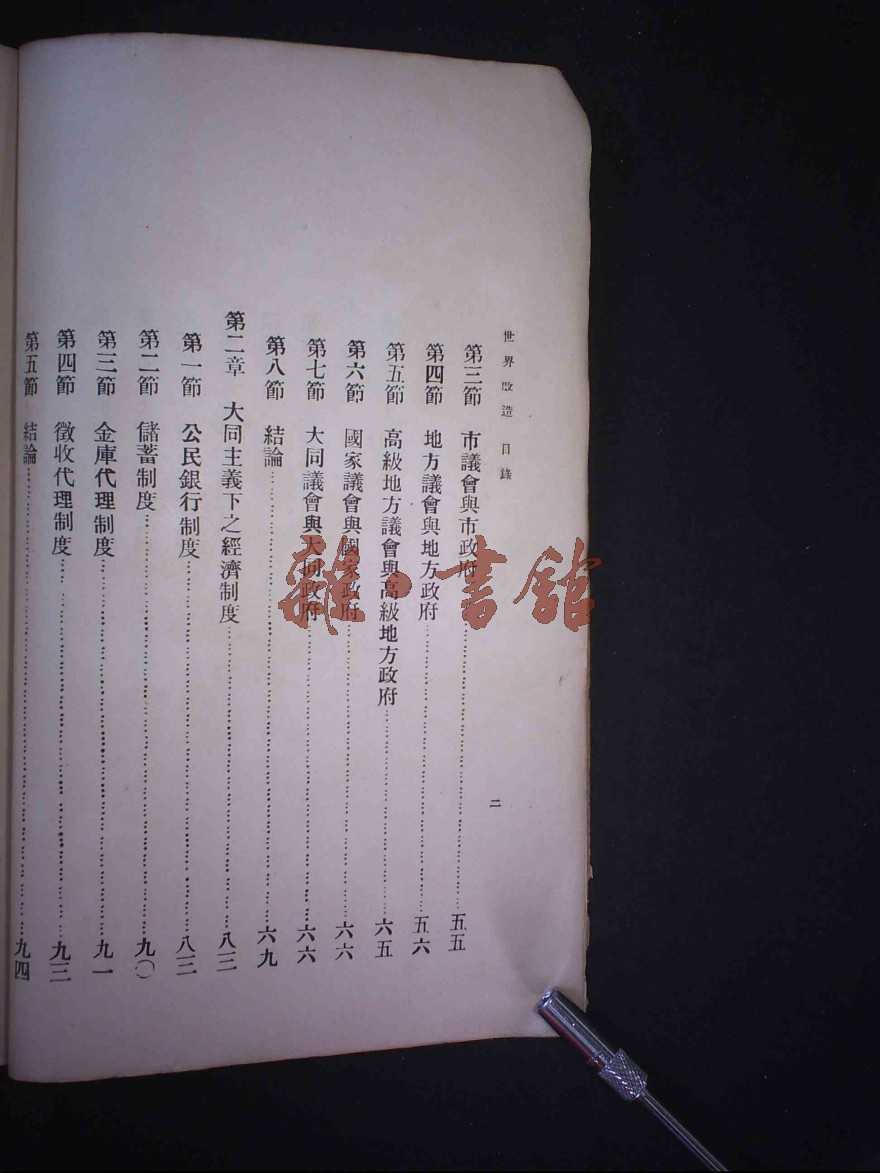 世界改造 目錄
二
第三節 市議會與市政府……五五
第四節 地方議會與地方政府……五六
第五節 高級地方議會與高級地方政府……六五
第六節 國家議會與國家政府……六六
第七節 大同議會與大同政府……六六
第八節 結論……六九
第二章 大同主義下之經濟制度……八三
第一節 公民銀行制度……八三
第二節 儲蓄制度……九〇
第三節 金庫代理制度……九一
第四節 徵收代理制度……九三
第五節 結論……九四
雜·書館